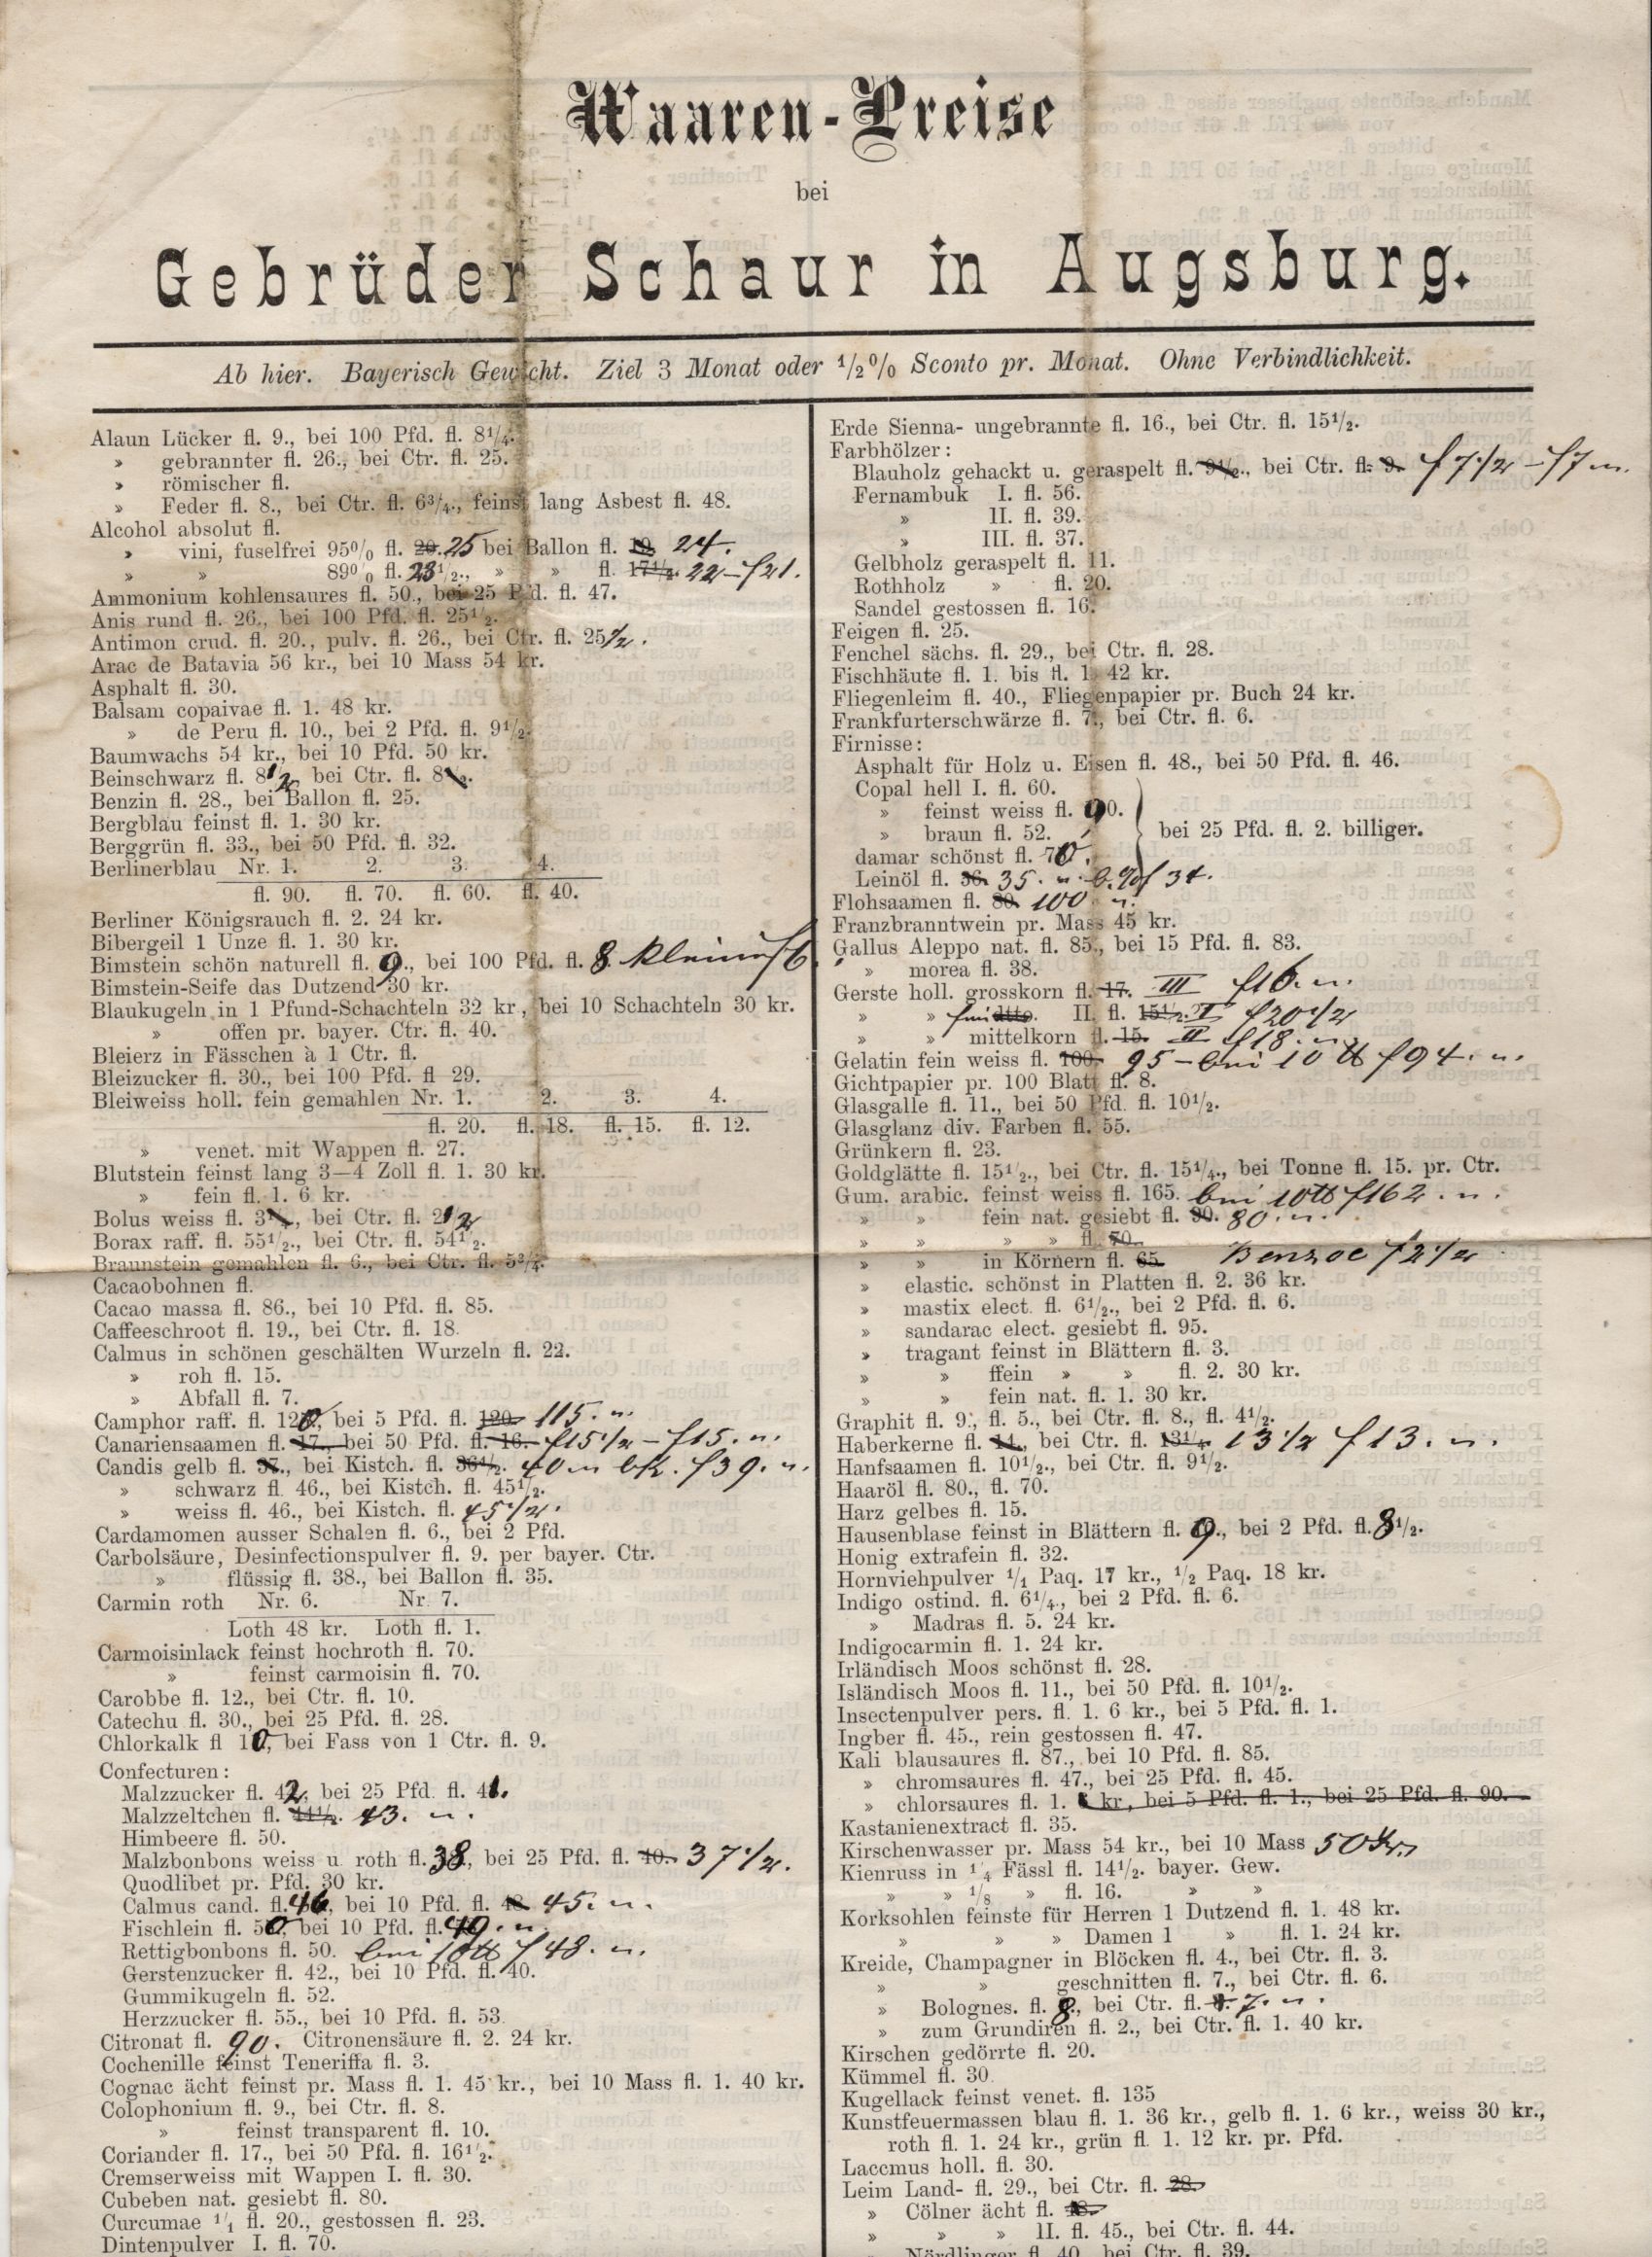 Waaren-Preise
bei
Gebrüder Schaur in Augsburg.
Ab hier. Bayerisch Gewicht. Ziel 3 Monat oder 1/2% Sconto pr. Monat. Ohne Verbindlichkeit.
Alaun Lücker fl. 9., bei 100 Pfd. fl. 8 1/4.
» gebrannter fl. 26., bei Ctr. fl. 25.
» römischer fl.
» Feder fl. 8., bei Ctr. fl. 6 3/4., feinst lang Asbest fl. 48.
Alcohol absolut fl.
» vini, fuselfrei 95% fl. 20. 25 bei Ballon fl. 19. 24.
» » 89% fl. 23 1/2., » » fl. 17 1/2. 22 – f 21.
Ammonium kohlensaures fl. 50., bei 25 Pfd. fl. 47.
Anis rund fl. 26., bei 100 Pfd. fl. 25 1/2.
Antimon crud. fl. 20., pulv. fl. 26., bei Ctr. fl. 25 1/2.
Arac de Batavia 56 kr., bei 10 Mass 54 kr.
Asphalt fl. 30.
Balsam copaivae fl. 1. 48 kr.
» de Peru fl. 10., bei 2 Pfd. fl. 9 1/2.
Baumwachs 54 kr., bei 10 Pfd. 50 kr.
Beinschwarz fl. 8 1/2, bei Ctr. fl. 8
Benzin fl. 28., bei Ballon fl. 25.
Bergblau feinst fl. 1. 30 kr.
Berggrün fl. 33., bei 50 Pfd. fl. 32.
Berlinerblau Nr. 1. 2. 3. 4.
fl. 90. fl. 70. fl. 60. fl. 40.
Berliner Königsrauch fl. 2. 24 kr.
Bibergeil 1 Unze fl. 1. 30 kr.
Bimstein schön naturell fl. 9., bei 100 Pfd. fl. 8.
Bimstein-Seife das Dutzend 30 kr.
Blaukugeln in 1 Pfund-Schachteln 32 kr, bei 10 Schachteln 30 kr.
» offen pr. bayer. Ctr. fl. 40.
Bleierz in Fässchen à 1 Ctr. fl.
Bleizucker fl. 30., bei 100 Pfd. fl 29.
Bleiweiss holl. fein gemahlen Nr. 1. 2. 3. 4.
fl. 20. fl. 18. fl. 15. fl. 12.
» venet. mit Wappen fl. 27.
Blutstein feinst lang 3—4 Zoll fl. 1. 30 kr.
» fein fl. 1. 6 kr.
Bolus weiss fl. 3, bei Ctr. fl. 2 1/2
Borax raff. fl. 55 1/2., bei Ctr. fl. 54 1/2.
Braunstein gemahlen fl. 6., bei Ctr. fl. 5 3/4.
Cacaobohnen fl.
Cacao massa fl. 86., bei 10 Pfd. fl. 85.
Caffeeschroot fl. 19., bei Ctr. fl. 18.
Calmus in schönen geschälten Wurzeln fl. 22.
» roh fl. 15.
» Abfall fl. 7.
Camphor raff. fl. 120, bei 5 Pfd. fl. 120. 115. n.
Canariensaamen fl. 17., bei 50 Pfd. fl. 16. f 15 1/2 – f 15. n.
Candis gelb fl. 37., bei Kistch. fl. 36 1/2. 40 f 39. n.
» schwarz fl. 46., bei Kistch. fl. 45 1/2.
» weiss fl. 46., bei Kistch. fl. 45 1/2.
Cardamomen ausser Schalen fl. 6., bei 2 Pfd.
Carbolsäure, Desinfectionspulver fl. 9. per bayer. Ctr.
» flüssig fl. 38., bei Ballon fl. 35.
Carmin roth Nr. 6. Nr. 7.
Loth 48 kr. Loth fl. 1.
Carmoisinlack feinst hochroth fl. 70.
» feinst carmoisin fl. 70.
Carobbe fl. 12., bei Ctr. fl. 10.
Catechu fl. 30., bei 25 Pfd. fl. 28.
Chlorkalk fl 10, bei Fass von 1 Ctr. fl. 9.
Confecturen:
Malzzucker fl. 42, bei 25 Pfd. fl. 41.
Malzzeltchen fl. 44 1/2. 43. n.
Himbeere fl. 50.
Malzbonbons weiss u. roth fl. 38, bei 25 Pfd. fl. 40. 37 1/2.
Quodlibet pr. Pfd. 30 kr.
Calmus cand. fl. 46, bei 10 Pfd. fl. 48 45. n.
Fischlein fl. 50, bei 10 Pfd. fl. 49. n
Rettigbonbons fl. 50. bei 10 ℔ f 48. n.
Gerstenzucker fl. 42., bei 10 Pfd. fl. 40.
Gummikugeln fl. 52.
Herzzucker fl. 55., bei 10 Pfd. fl. 53.
Citronat fl. 90. Citronensäure fl. 2. 24 kr.
Cochenille feinst Teneriffa fl. 3.
Cognac ächt feinst pr. Mass fl. 1. 45 kr., bei 10 Mass fl. 1. 40 kr.
Colophonium fl. 9., bei Ctr. fl. 8.
» feinst transparent fl. 10.
Coriander fl. 17., bei 50 Pfd. fl. 16 1/2.
Cremserweiss mit Wappen I. fl. 30.
Cubeben nat. gesiebt fl. 80.
Curcumae 1/1 fl. 20., gestossen fl. 23.
Dintenpulver I. fl. 70.
Erde Sienna- ungebrannte fl. 16., bei Ctr. fl. 15 1/2.
Farbhölzer:
Blauholz gehackt u. geraspelt fl. 9 1/2., bei Ctr. fl. 9. f 7 1/2 – f 7 n.
Fernambuk I. fl. 56.
» II. fl. 39.
» III. fl. 37.
Gelbholz geraspelt fl. 11.
Rothholz » fl. 20.
Sandel gestossen fl. 16.
Feigen fl. 25.
Fenchel sächs. fl. 29., bei Ctr. fl. 28.
Fischhäute fl. 1. bis fl. 1. 42 kr.
Fliegenleim fl. 40., Fliegenpapier pr. Buch 24 kr.
Frankfurterschwärze fl. 7., bei Ctr. fl. 6.
Firnisse:
Asphalt für Holz u. Eisen fl. 48., bei 50 Pfd. fl. 46.
Copal hell I. fl. 60.
» feinst weiss fl. 90.
» braun fl. 52. bei 25 Pfd. fl. 2. billiger.
damar schönst fl. 70.
Leinöl fl. 36. 35. n. 34.
Flohsaamen fl. 80. 100 n.
Franzbranntwein pr. Mass 45 kr.
Gallus Aleppo nat. fl. 85., bei 15 Pfd. fl. 83.
» morea fl. 38.
Gerste holl. grosskorn fl. 17. III f 16. n.
» » ditto. II. fl. 15 1/2. I f 20 1/2
» » mittelkorn fl. 15. II f 18. n.
Gelatin fein weiss fl. 100. 95 – bei 10 ℔ f 94. n.
Gichtpapier pr. 100 Blatt fl. 8.
Glasgalle fl. 11., bei 50 Pfd. fl. 10 1/2.
Glasglanz div. Farben fl. 55.
Grünkern fl. 23.
Goldglätte fl. 15 1/2., bei Ctr. fl. 15 1/4., bei Tonne fl. 15. pr. Ctr.
Gum. arabic. feinst weiss fl. 165. bei 10 ℔ f 162. n.
» » fein nat. gesiebt fl. 90. 80. n.
» » » » fl. 70.
» » in Körnern fl. 65. Benzoe f 2 1/2
» elastic. schönst in Platten fl. 2. 36 kr.
» mastix elect. fl. 6 1/2., bei 2 Pfd. fl. 6.
» sandarac elect. gesiebt fl. 95.
» tragant feinst in Blättern fl. 3.
» » ffein » » fl. 2. 30 kr.
» » fein nat. fl. 1. 30 kr.
Graphit fl. 9., fl. 5., bei Ctr. fl. 8., fl. 4 1/2.
Haberkerne fl. 14., bei Ctr. fl. 13 1/4. 13 1/2 f 13. n.
Hanfsaamen fl. 10 1/2., bei Ctr. fl. 9 1/2.
Haaröl fl. 80., fl. 70.
Harz gelbes fl. 15.
Hausenblase feinst in Blättern fl. 9., bei 2 Pfd. fl. 8 1/2.
Honig extrafein fl. 32.
Hornviehpulver 1/1 Paq. 17 kr., 1/2 Paq. 18 kr.
Indigo ostind. fl. 6 1/4., bei 2 Pfd. fl. 6.
» Madras fl. 5. 24 kr.
Indigocarmin fl. 1. 24 kr.
Irländisch Moos schönst fl. 28.
Isländisch Moos fl. 11., bei 50 Pfd. fl. 10 1/2.
Insectenpulver pers. fl. 1. 6 kr., bei 5 Pfd. fl. 1.
Ingber fl. 45., rein gestossen fl. 47.
Kali blausaures fl. 87., bei 10 Pfd. fl. 85.
» chromsaures fl. 47., bei 25 Pfd. fl. 45.
» chlorsaures fl. 1. kr, bei 5 Pfd. fl. 1., bei 25 Pfd. fl. 90.
Kastanienextract fl. 35.
Kirschenwasser pr. Mass 54 kr., bei 10 Mass 50 Kr.
Kienruss in 1/4 Fässl fl. 14 1/2. bayer. Gew.
» » 1/8 » fl. 16. » »
Korksohlen feinste für Herren 1 Dutzend fl. 1. 48 kr.
» » » Damen 1 » fl. 1. 24 kr.
Kreide, Champagner in Blöcken fl. 4., bei Ctr. fl. 3.
» » geschnitten fl. 7., bei Ctr. fl. 6.
» Bolognes. fl. 8., bei Ctr. fl. 7. n.
» zum Grundiren fl. 2., bei Ctr. fl. 1. 40 kr.
Kirschen gedörrte fl. 20.
Kümmel fl. 30.
Kugellack feinst venet. fl. 135
Kunstfeuermassen blau fl. 1. 36 kr., gelb fl. 1. 6 kr., weiss 30 kr.,
roth fl. 1. 24 kr., grün fl. 1. 12 kr. pr. Pfd.
Laccmus holl. fl. 30.
Leim Land- fl. 29., bei Ctr. fl. 28.
» Cölner ächt fl. 48.
» » » II. fl. 45., bei Ctr. fl. 44.
» Nördlinger fl. 40., bei Ctr. fl. 39.